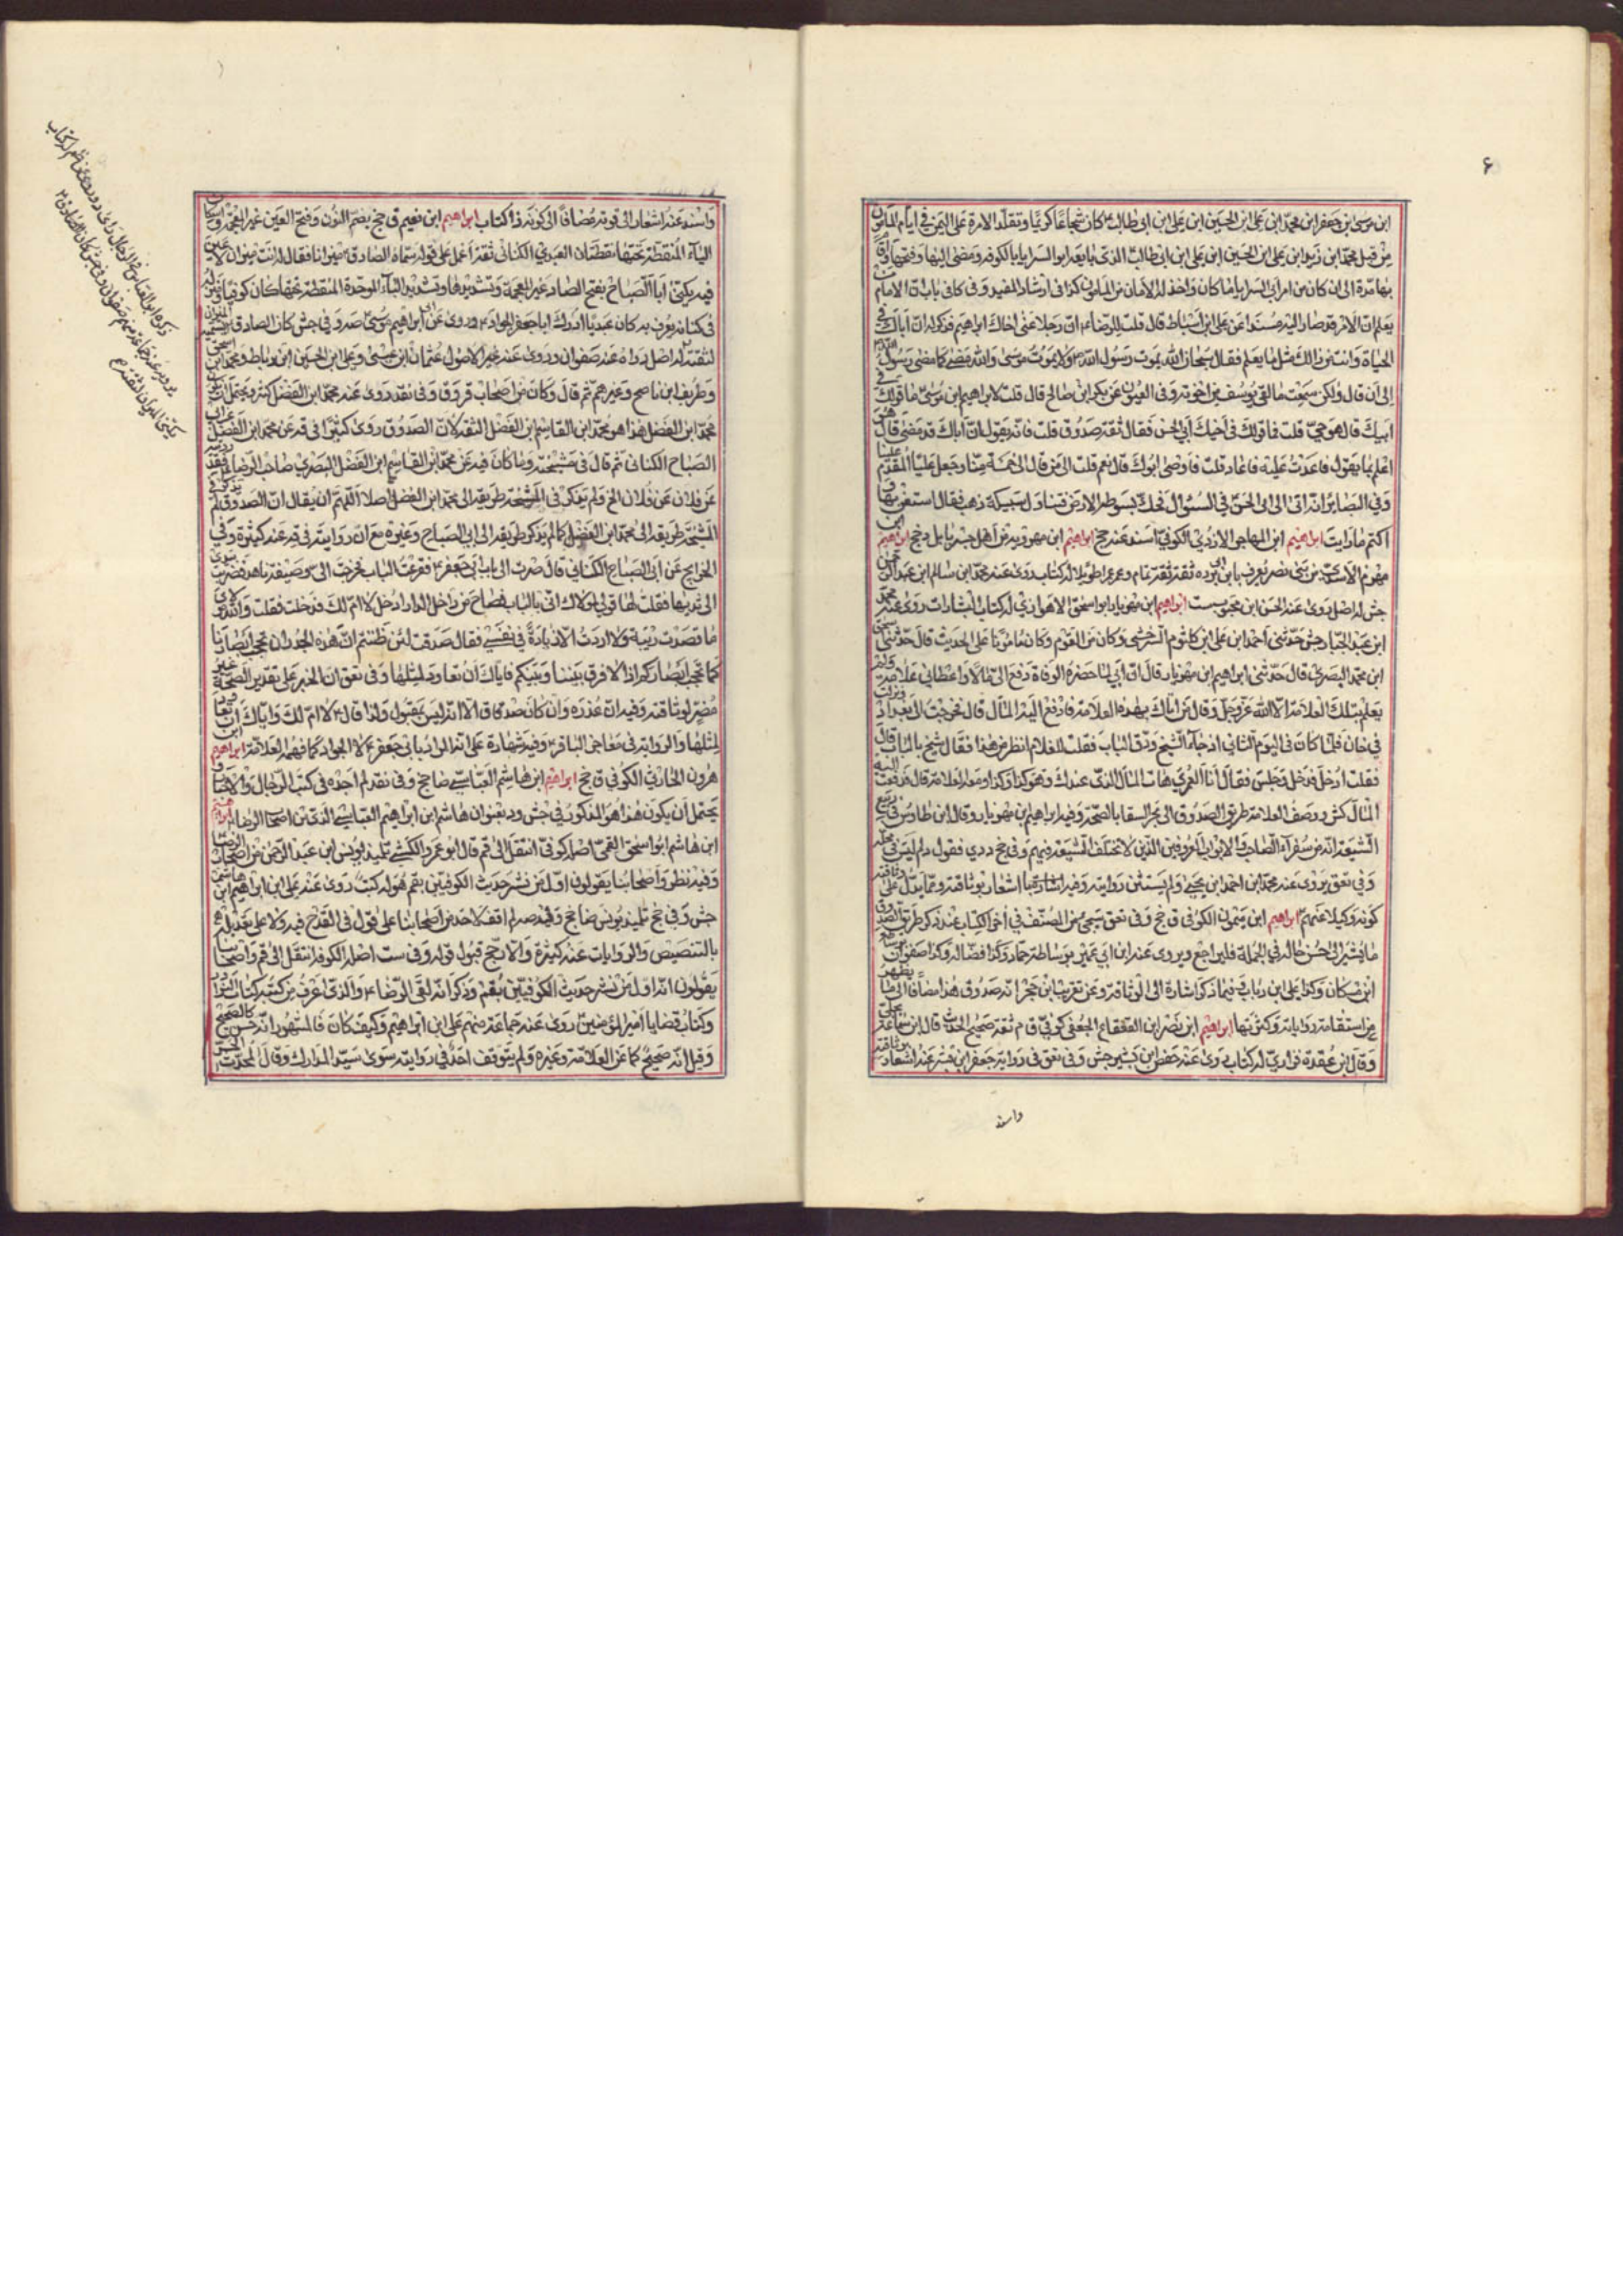 ۶
ابن موسى بن جعفر ابن محمد ابن على ابن الحسين ابن على ابن ابى طالب كان شجاعا كريما وتقلد الامرة على اليمن فى ايام المأمون
من قبل محمد ابن زيد ابن على ابن الحسين ابن على ابن ابى طالب الذى بايعه ابو السرايا بالكوفة ومضى اليها وفتحها واقام
بها مدة الى ان كان من امر ابى السرايا ما كان واخذ له الامان من المأمون كذا فى ارشاد المفيد وفى كافى باب ان الامام متى
يعلم ان الامر قد صار اليه مسندا عن على ابن اسباط قال قلت للرضا ان رجلا عنى اخاك ابراهيم فذكر له ان اباك فى
الحياة وانت من ذلك ما يعلم فقال سبحان الله يموت رسول الله ولا يموت موسى والله مضى كما مضى رسول الله
الى ان قال ولكن سمعت ما لقى يوسف من اخوته وفى العيون عن بكر ابن صالح قال قلت لابراهيم ابن موسى ما قولك فى
ابيك قال هو حى قلت فما قولك فى اخيك ابى الحسن فقال ثقة صدوق قلت فانه يقول ان اباك قد مضى قال هو
اعلم بما يقول فاعدت عليه فاعاد قلت فاوصى ابوك قال نعم قلت الى من قال الى خمسة منا وجعل عليا المقدم علينا
وفى البصاير انه اتى الى الحق فى السؤال فحك بسوطه الارض فتناول سبيكة ذهب فقال استغن بها و
اكتم ما رايت ابراهيم ابن المهاجر الازدى الكوفى اسند عنه جخ ابراهيم ابن مهرويه من اهل جسر بابل دى جخ ابراهيم ابن
مهزم الاسدى من بنى نصر يعرف بابن ابى برده ثقة ثقة وعمر عمرا طويلا له كتاب روى عنه محمد ابن سالم ابن عبد الرحمن
جش له اصل روى عنه الحسن ابن محبوب ست ابراهيم ابن مهزيار ابو اسحق الاهوازى له كتاب البشارات روى عنه محمد
ابن عبد الجبار جش حدثنى احمد ابن على ابن كلثوم السرخسى وكان من القوم وكان مأمونا على الحديث قال حدثنى اسحق
ابن محمد البصرى قال حدثنى ابراهيم ابن مهزيار قال ان ابى لما حضره الوفاة دفع الى مالا واعطانى علامة ولم
يعلم بتلك العلامة الا الله عز وجل وقال من اتاك بهذه العلامة فادفع اليه المال قال فخرجت الى بغداد ونزلت
فى خان فلما كان فى اليوم الثانى اذ جاء الشيخ ودق الباب فقلت للغلام انظر من هذا فقال شيخ بالباب قال
فقلت ادخل فدخل فجلس فقال انا العمرى هات المال الذى عندك وهو كذا وكذا ومعه العلامة قال فدفعت اليه
المال كش وصف العلامة طريق الصدوق الى بحر السقا بالصحة وفيه ابراهيم بن مهزيار وقال ابن طاوس فى ربيع
الشيعة انه من سفراء الصاحب والابواب المعروفين الذين لا تختلف الشيعة فيهم
وفى تعق يروى عنه محمد ابن احمد ابن يحيى ولم يستثن روايته وفيه اشعار بوثاقته ومما يدل على
كونه وكيلا عنهم ابراهيم ابن ميمون الكوفى ق جخ وفى تعق سيجئ من المصنف فى آخر الكتاب عند ذكر طريق الصدوق
ما يشير الى حسن حاله فى الجملة فليراجع ويروى عنه ابن ابى عمير بوساطة حماد وكذا فضالة وكذا صفوان
ابن مسكان وكذا على ابن رياب فيما ذكر اشارة الى الوثاقة وعن تقريب ابن حجر انه صدوق هذا مضافا الى ما يظهر
من استقامة رواياته وكثرتها ابراهيم ابن نصر ابن القعقاع الجعفى كوفى ق م ثقة صحيح الحديث قال ابن سماعة
وقال ابن عقدة فزارى له كتاب روى عنه جعفر ابن بشير جش وفى تعق فى رواية جعفر ابن بشير عنه اشعار
واسند
واسند عنه اشعار الى قوته مضافا الى كونه ذا كتاب ابراهيم ابن نعيم ق جخ بضم النون وفتح العين غير المعجمة واسكان
الياء المنقطة تحتها نقطتان العبدى الكنانى ثقة اعمل على قوله سماه الصادق ميزانا فقال له انت ميزان لا عين
فيه يكنى ابا الصباح بفتح الصاد غير المعجمة وتشديدها وتشديد الباء الموحدة المنقطة تحتها كان كوفيا ونزل
فى كنانة يعرف به كان عبديا ادرك ابا جعفر الجواد وروى عن ابى ابراهيم موسى صه وفى جش كان الصادق يسميه الميزان
لثقته له اصل رواه عنه صفوان وروى عنه غير الاصول عثمان ابن عيسى وعلى ابن الحسين ابن رباط ومحمد ابن اسحق
وظريف ابن ناصح وغيرهم ثم قال وكان من اصحاب ق وفى نقد روى عنه محمد ابن الفضل كثيرا ويحتمل ان يكون
محمد ابن الفضل هذا هو محمد ابن القاسم ابن الفضل الثقة لان الصدوق روى كثيرا فى قه عن محمد ابن الفضل عن ابى
الصباح الكنانى ثم قال فى مشيخته وما كان فيه عن محمد ابن القاسم ابن الفضل البصرى صاحب الرضا فقد رويته
عن فلان عن فلان الخ ولم يذكر فى المشيخة طريقه الى محمد ابن الفضل اصلا اللهم ان يقال ان الصدوق لم يذكر فى
المشيخة طريقه الى محمد ابن الفضل كما لم يذكر طريقه الى ابى الصباح وغيره مع ان روايته فى قه عنه كثيرة وفى
الخرايج عن ابى الصباح الكنانى قال صرت الى باب ابى جعفر فقرعت الباب فخرجت الى وصيفة ناهد فضربت بيدى
الى ثديها فقلت لها قولى لمولاك انى بالباب فصاح من داخل الدار ادخل لا ام لك فدخلت فقلت والله يا مولاى
ما قصدت ريبة ولا اردت الا زيادة فى نفسى فقال صدقت لئن ظننتم ان هذه الجدران تحجب ابصارنا
كما تحجب ابصاركم اذا لا فرق بيننا وبينكم فاياك ان تعاود لمثلها وفى تعق ان الخبر على تقدير الصحة غير
مضر لوثاقته وفيه ان عذره وان كان صدقا الا انه ليس بمقبول ولذا قال لا ام لك واياك ان تعاود
لمثلها والرواية فى معاجز الباقر وفيه شهادة على انه المراد بابى جعفر لا الجواد كما فهمه العلامة ابراهيم ابن
هرون الخارفى الكوفى ق جخ ابراهيم ابن هاشم العباسى ضا جخ وفى نقد لم اجده فى كتب الرجال والاخبار و
يحتمل ان يكون هذا هو المذكور فى جش بعنوان هاشم ابن ابراهيم العباسى الذى من اصحاب الرضا ابراهيم
ابن هاشم ابو اسحق القمى اصله كوفى انتقل الى قم قال ابو عمرو الكشى تلميذ يونس ابن عبد الرحمن من اصحاب الرضا
وفيه نظر واصحابنا يقولون اول من نشر حديث الكوفيين بقم هو له كتب روى عنه على ابن ابراهيم ابن هاشم
جش وفى جخ تلميذ يونس ضا جخ وفى صه لم اقف لاحد من اصحابنا على قول فى القدح فيه ولا على تعديله
بالتنصيص والروايات عنه كثيرة والارجح قبول قوله وفى ست اصله الكوفة انتقل الى قم واصحابنا
يقولون انه اول من نشر حديث الكوفيين بقم وذكروا انه لقى الرضا والذى اعرف من كتبه كتاب النوادر
وكتاب قضايا امير المؤمنين روى عنه جماعة منهم على ابن ابراهيم وكيف كان فالمشهور انه حسن كالصحيح
وقيل انه صحيح كما عن العلامة وغيره ولم يتوقف احد فى روايته سوى سيد المدارك وقال المحدث الحر
ذكره ابو العباس فى الرجال